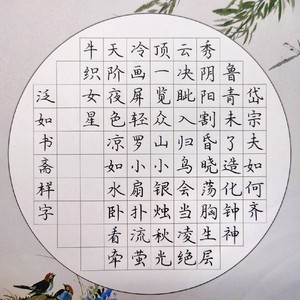 岱宗夫如何齐
鲁青未了造化钟神
秀阴阳割昏晓荡胸生层
云决眦入归鸟会当凌绝
顶一览众山小银烛秋光
冷画屏轻罗小扇扑流萤
天阶夜色凉如水卧看牵
牛织女星
泛如书斋样字